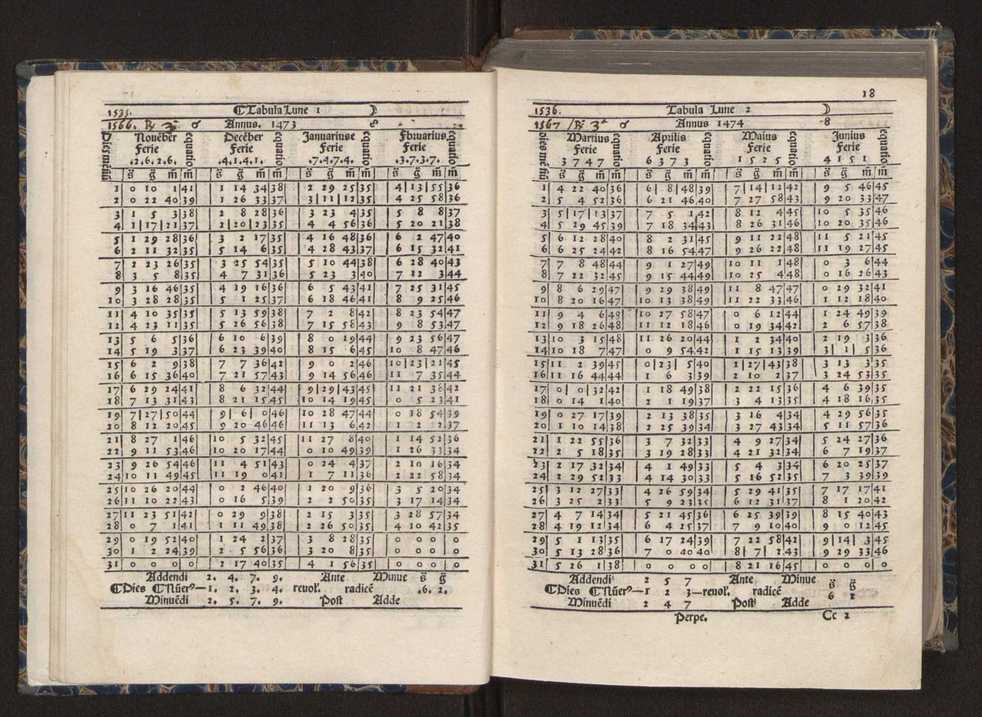 1535. ¶Tabula Lune 1
1566. Annus. 1473
Nouēber Decēber Januariuse Fbruarius
Ferie Ferie Ferie Ferie
.2.6.2.6. .4.1.4.1. .7.4.7.4. .3.7.3.7.
g̃ g̃ m̃ m g̃ g̃ m̃ m g̃ g̃ m̃ m g̃ g̃ m̃ m
1 0 10 1 41 1 14 34 38 2 29 25 35 4 13 55 36
2 0 22 40 39 1 26 33 37 3 11 12 35 4 25 58 36
3 1 5 3 38 2 8 28 36 3 23 4 35 5 8 8 37
4 1 17 21 37 2 20 23 35 4 4 56 36 5 20 21 38
5 1 29 28 36 3 2 17 35 4 16 48 36 6 2 47 40
6 2 11 32 35 5 14 6 35 4 28 46 37 6 15 32 41
7 2 23 26 35 3 25 54 35 5 10 44 38 6 28 40 43
8 3 5 8 35 4 7 31 36 5 23 3 40 7 12 3 44
9 3 16 46 35 4 19 16 36 6 5 43 41 7 25 31 45
10 3 28 28 35 5 1 25 37 6 18 46 41 8 9 25 46
11 4 10 35 35 5 13 59 38 7 2 8 42 8 23 54 47
12 4 23 11 35 5 26 56 38 7 15 58 43 9 8 53 47
13 5 6 5 36 6 10 6 39 8 0 19 44 9 23 56 47
14 5 19 3 37 6 23 39 40 8 15 6 45 10 8 47 46
15 6 2 9 38 7 7 36 42 9 0 2 46 10 23 21 45
16 6 15 36 40 7 21 57 43 9 14 56 46 11 7 35 44
17 6 29 24 41 8 6 32 44 9 29 43 45 11 21 38 42
18 7 13 31 43 8 21 15 45 10 14 19 45 0 5 23 41
19 7 27 50 44 9 6 0 46 10 28 47 44 0 18 54 39
20 8 12 20 45 9 20 46 46 11 13 6 42 1 2 2 37
21 8 27 1 46 10 5 32 45 11 27 8 40 1 14 52 36
22 9 11 53 46 10 20 17 44 0 10 49 39 1 26 33 34
23 9 26 54 46 11 4 51 43 0 24 4 37 2 10 16 34
24 10 11 49 45 11 19 0 41 1 7 11 36 2 22 58 34
25 10 26 20 44 0 2 46 40 1 20 9 36 3 5 20 34
26 11 10 22 43 0 16 5 39 2 2 50 35 3 17 14 34
27 11 23 51 42 0 29 9 38 2 15 3 35 3 28 57 34
28 0 7 1 41 1 11 49 38 2 26 50 35 4 10 42 35
29 0 19 52 40 1 24 2 37 3 8 28 35 0 0 0 0
30 1 2 24 39 2 5 56 36 3 20 8 35 0 0 0 0
31 0 0 0 0 2 17 40 35 4 1 56 35 0 0 0 0
Addendi 2. 4. 7. 9. Ante Minue g̃ g̃
¶Dies ¶Nūer⁹—1. 2. 3. 4. reuol. radicē .6. 2.
Minuēdi 2. 5. 7. 9. Post Adde
18
1536. Tabula Lune 2
1567 Annus 1474
Martius Aprilis Maius Junius
Ferie Ferie Ferie Ferie
3 7 4 7 6 3 7 3 1 5 2 5 4 1 5 1
g̃ g̃ m̃ m g̃ g̃ m̃ m g̃ g̃ m̃ m g̃ g̃ m̃ m
1 4 22 40 36 6 8 48 39 7 14 12 42 9 5 46 45
2 5 4 52 36 6 21 46 40 7 27 58 43 9 20 33 47
3 5 17 13 37 7 5 1 42 8 12 4 45 10 5 35 46
4 5 19 45 39 7 18 34 43 8 26 31 46 10 20 35 46
5 6 12 28 40 8 2 31 45 9 11 22 48 11 5 21 45
6 6 25 24 42 8 16 54 47 9 26 22 48 11 19 27 45
7 7 8 48 44 9 1 27 49 10 11 1 48 0 3 6 44
8 7 22 32 45 9 15 44 49 10 25 4 48 0 16 26 43
9 8 6 29 47 9 29 38 49 11 8 47 47 0 29 32 41
10 8 20 16 47 10 13 38 49 11 22 33 46 1 12 18 40
11 9 4 6 49 10 27 58 47 0 6 12 44 1 24 49 39
12 9 18 26 48 11 12 18 46 0 19 34 42 2 6 57 38
13 10 3 15 48 11 26 20 44 1 2 34 40 2 19 3 36
14 10 18 7 47 0 9 54 42 1 15 13 39 3 1 5 36
15 11 2 39 45 0 23 5 40 1 27 43 38 3 13 3 35
16 11 16 44 44 1 6 3 39 2 10 2 37 3 24 53 35
17 0 0 32 42 1 18 49 38 2 22 15 36 4 6 39 35
18 0 14 1 40 2 1 19 37 3 4 13 35 4 18 16 35
19 0 27 17 39 2 13 38 35 3 16 4 34 4 29 56 35
20 1 10 14 38 2 25 39 34 3 27 43 34 5 11 57 36
21 1 22 55 36 3 7 32 33 4 9 27 34 5 24 27 36
22 2 5 18 35 3 19 28 33 4 21 32 34 6 7 19 37
23 2 17 32 34 4 1 49 33 5 4 3 34 6 20 25 37
24 2 29 52 33 4 14 30 33 5 16 52 35 7 3 39 39
25 3 12 27 33 4 26 59 34 5 29 41 35 7 17 17 41
26 3 25 2 33 5 9 22 35 6 12 31 37 8 1 20 42
27 4 7 14 34 5 21 45 36 6 25 39 39 8 15 40 43
28 4 19 12 34 6 4 25 37 7 9 10 40 9 0 12 45
29 5 1 13 35 6 17 24 39 7 22 58 42 9 14 3 45
30 5 13 28 36 7 0 40 40 8 7 2 43 9 29 33 46
31 5 26 1 38 0 0 0 0 8 21 16 45 0 0 0 0
Addendi 2 5 7 Ante Minue g̃ g̃
¶Dies ¶Nūer⁹—1 2 3—reuol. radicē 6 2
Minuēdi 2 4 7 Post Adde
Perpe. Cc 2